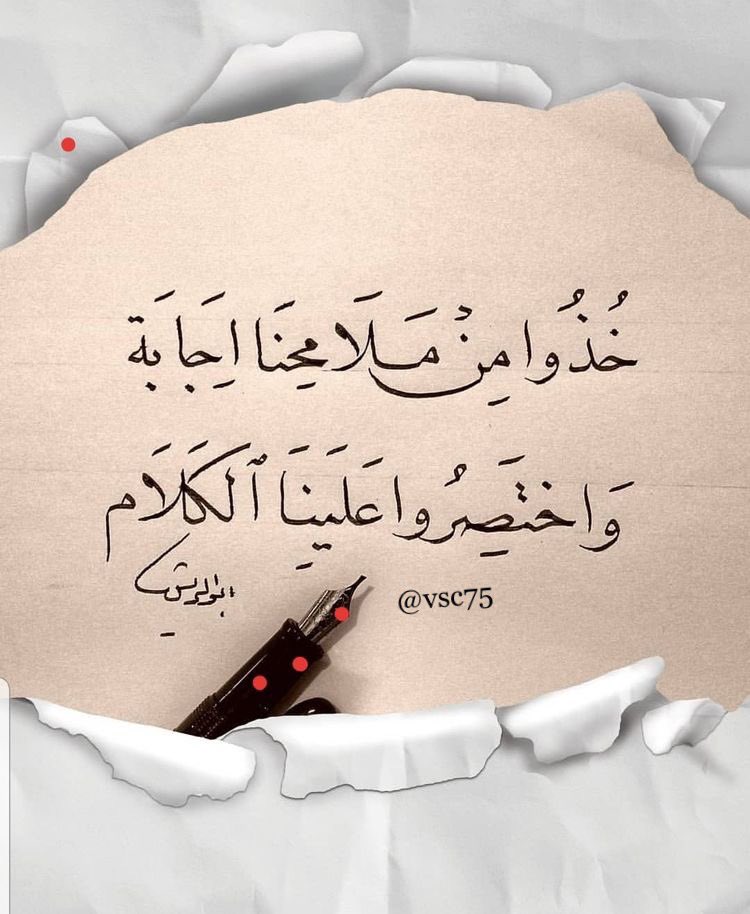 خُذُوا مِنْ مَلَامِحِنَا اِجَابَة
وَاخْتَصِرُوا عَلَينِا ٱلكَلَام
@vsc75